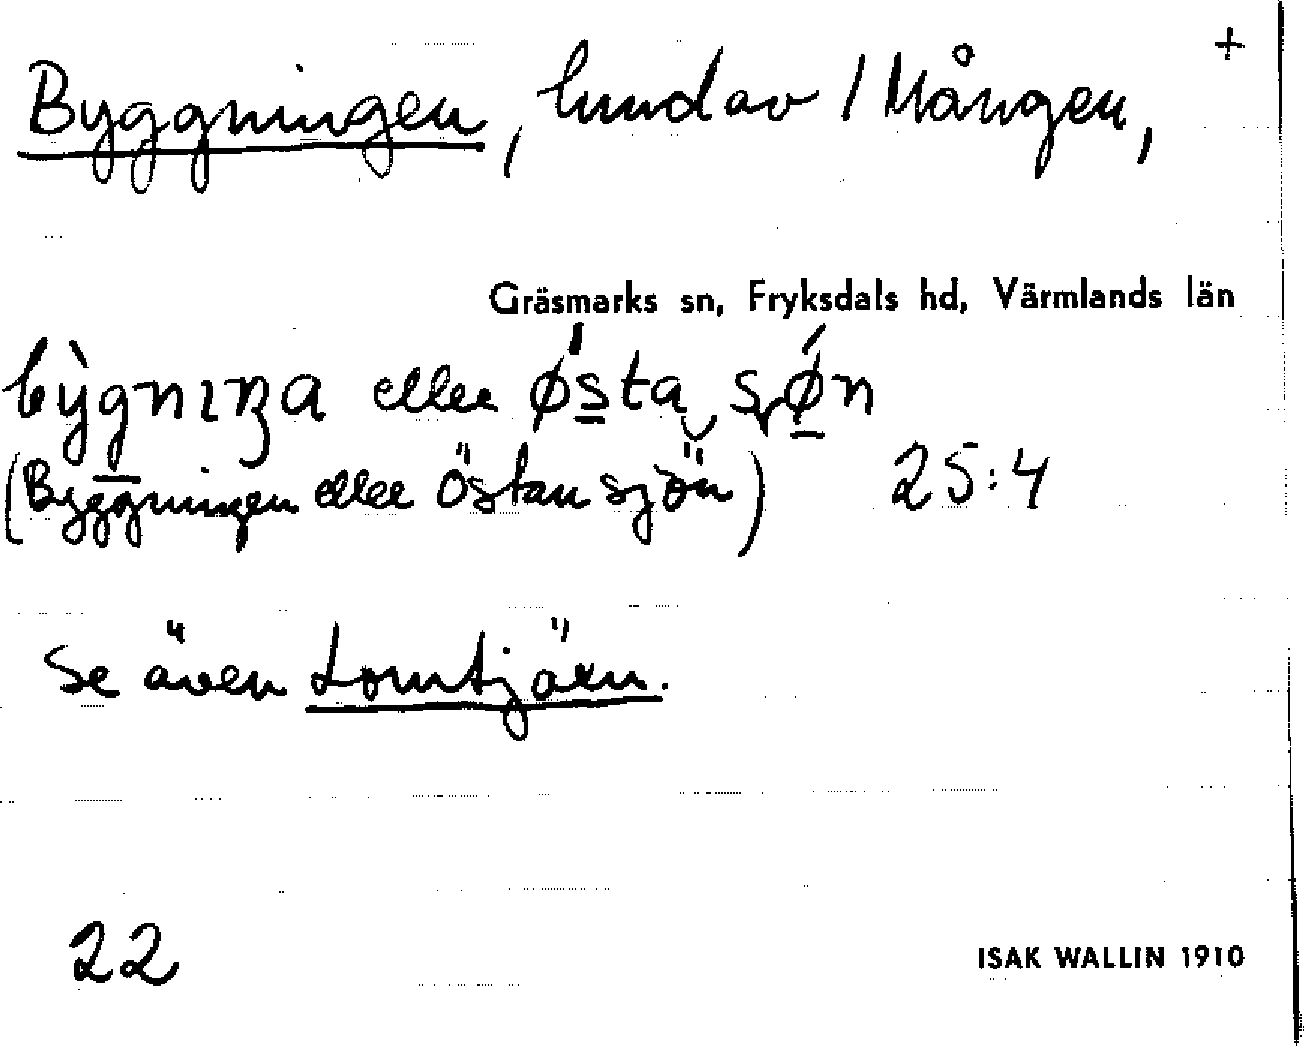 +
Byggningen, hmdav 1 Mången,
Gräsmarks sn, Fryksdals hd, Värmlands län
eller
(Byggningen eller Östan sjön) 25:4
Se även Lomtjärn.
22
ISAK WALLIN 1910